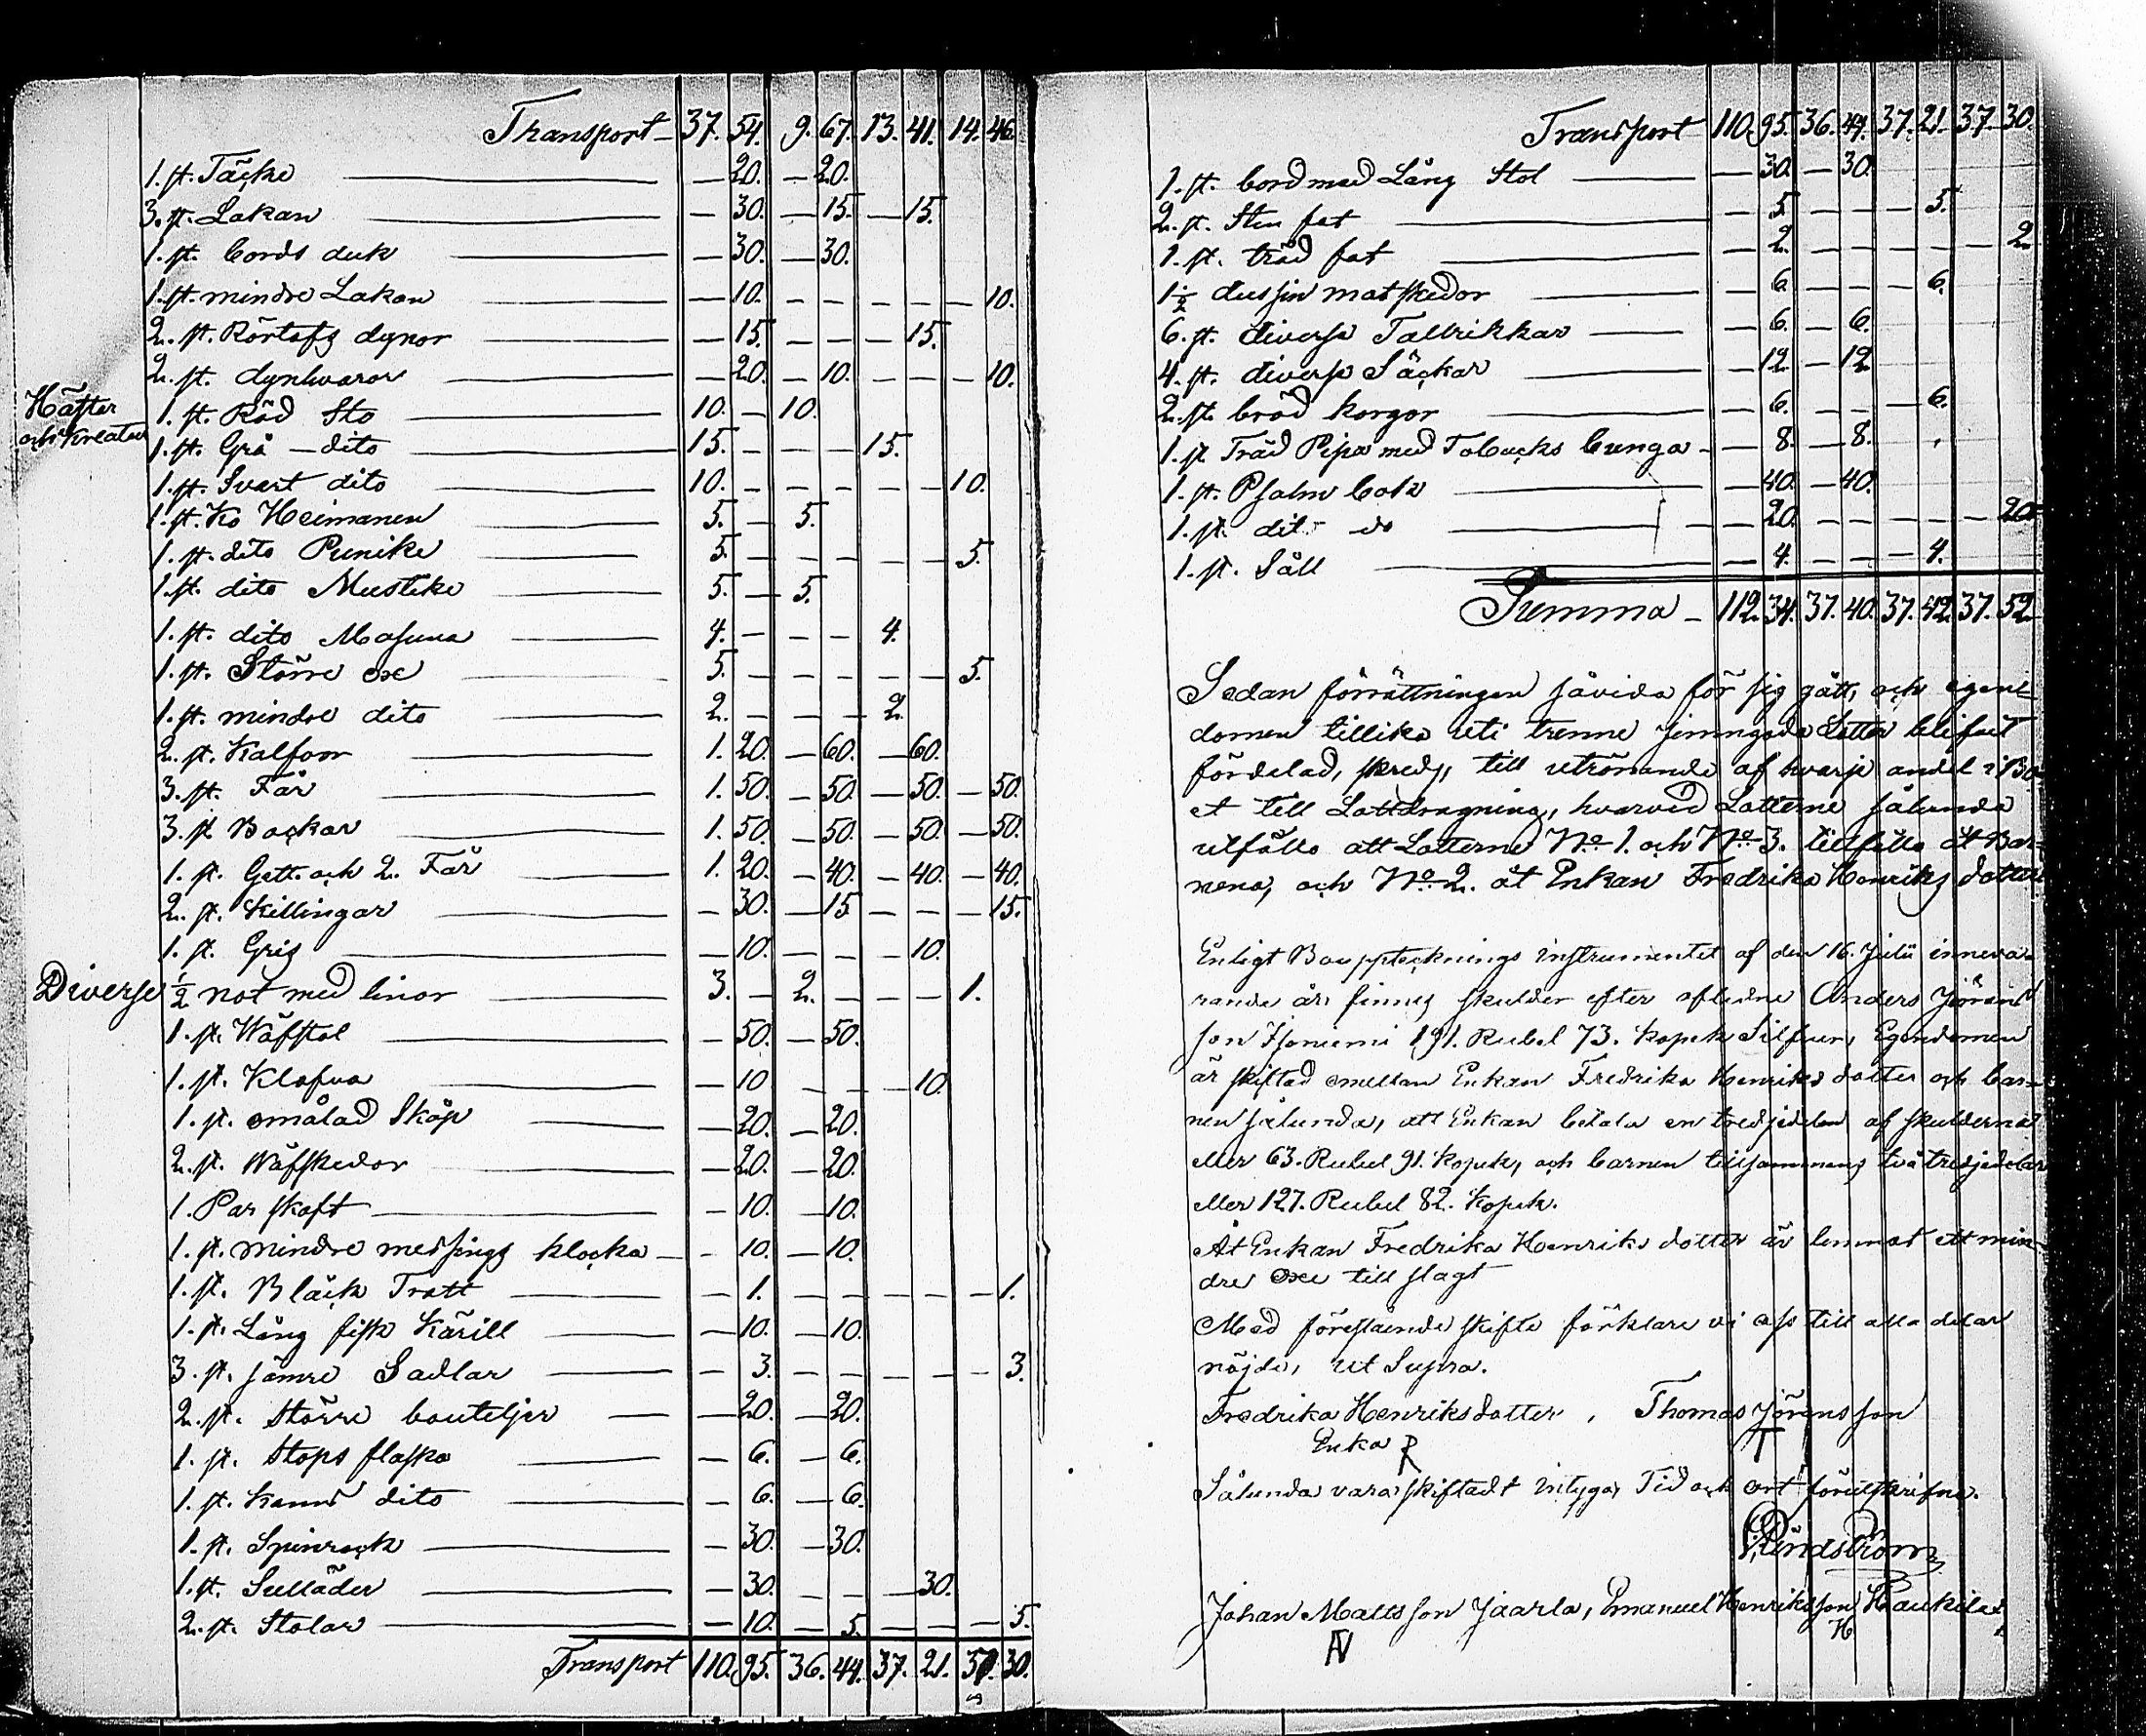 Transport 37. 54. 9. 67. 13. 41. 14. 46.
1. st. Täcke — 20. — 20.
3. st. Lakan — 30. — 15. — 15.
1. st. bords duk — 30. — 30.
1. st. mindre Lakan — 10. — — — — — 10.
2. st. Rörtafs dynor — 15. — — — 15.
2. st. dynhvaror — 20. — 10. — — — 10.
Häster och Kreatur
1. st. Röd Sto 10. — 10.
1. st. Grå — dito 15. — — — 15.
1. st. Svart dito 10. — — — — — 10.
1. st. Ko Heimanen 5. — 5.
1. st. dito Punike 5. — — — — — 5.
1. st. dito Mustike 5. — 5.
1. st. dito Masuna 4. — — — 4.
1. st. Större oxe 5. — — — — — 5.
1. st. mindre dito 2. — — — 2.
2. st. Kalfvar 1. 20. — 60. — 60.
3. st. Får 1. 50. — 50. — 50. — 50.
3. st. Bockar 1. 50. — 50. — 50. — 50.
1. st. Gett och 2. Får 1. 20. — 40. — 40. — 40.
2. st. Killingar — 30. — 15 — — — 15.
1. st. Gris — 10. — — — 10.
Diverse ½ not med linor 3. — 2. — — — 1.
1. st. Wäfstol — 50. — 50.
1. st. Klafva — 10 — — — 10.
1. st. omålad Skåp — 20. — 20.
2. st. Wäfskedar — 20. — 20.
1. Par skaft — 10. — 10.
1. st. mindre messings klocka — 10. — 10.
1. st. Bläck Tratt — 1. — — — — — 1.
1. st. Lång fisk Kärill — 10. — 10.
3. st. sämre Sadlar — 3. — — — — — 3.
2. st. Större bouteljer — 20. — 20.
1. st. Stops flaska — 6. — 6.
1. st. Kanns dito — 6. — 6.
1. st. Spinrock — 30. — 30.
1. st. Sulläder — 30. — — — 30.
2. st. Stolar — 10. — 5. — — — 5.
Transport 110. 95. 36. 44. 37. 21. 37. 30.
Transport 110. 95. 36. 44. 37. 21. 37. 30.
1. st. bord med Lång Stol — 30. — 30.
2. st. Sten fat — 5. — — — 5.
1. st. träd fat — 2. — — — — — 2.
1 ½ dussin matskedor — 6. — — — 6.
6. st. diverse Tallrikkar — 6. — 6.
4. st. diverse Säckar — 12. — 12.
2. st. bröd korgar — 6. — — — 6.
1. st. Träd Pipa med Tobacks bunga — 8. — 8.
1. st. Psalm bok — 40. — 40.
1. st. dit do — 20. — — — — — 20.
1. st. Såll — 4. — — — 4.
Summa — 112. 34. 37. 40. 37. 42. 37. 52.
Sedan förrättningen såvida för sig gått, och egen-
domen tillika uti trenne jemngoda Lotter blifvit
fördelad, skreds, till utrönande af hvarje andel i Bo-
et till Lottdragning, hvarvid Lotterne sålunda
utföllo att Lotterne No 1. och No 3. tillföllo åt Bar-
nena, och No 2. åt Enkan Fredrika Henriks dotter.
Enligt Bouppteknings instrumentet af den 16. Julii inneva-
rande år, finnes skulder efter aflidne Anders Jörans
son Isoniemi 191. Rubel 73. kopek Silfver, Egendomen
är skiftad emellan Enkan Fredrika Henriks dotter och bar-
nen sålunda, att Enkan betala en tredjedelen af skulderna
eller 63. Rubel 91. kopek, och barnen tillsammans två tredjedelar
eller 127. Rubel 82. kopek.
Åt Enkan Fredrika Henriks dotter är lemnat ett min-
dre oxe till slagt
Med förestående skifte förklare vi oss till alla delar
nöjde, ut Supra.
Fredrika Henriksdotter, Thomas Jöransson
Enka R T
Sålunda vara skiftadt intyga, Tid och ort förutskrifne.
Lindström
Johan Matts son Jaarla, Emanuel Henriksson Haukila
H